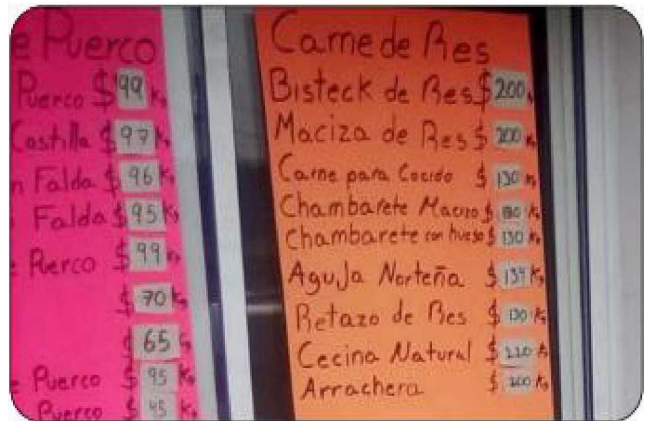 e Puerco
Puerco $99 Kg
Costilla $97 Kg
n Falda $96 Kg
Falda $95 Kg
e Puerco $99 Kg
$70 Kg
$65 Kg
e Puerco $95 Kg
Puerco $45 Kg
Carne de Res
Bisteck de Res $200
Maciza de Res $200 Kg
Carne para Cocido $130 Kg
Chambarete Macizo $ Kg
Chambarete con hueso $130 Kg
AguJa Norteña $134 Kg
Retazo de Res $130 Kg
Cecina Natural $220 Kg
Arrachera $200 Kg